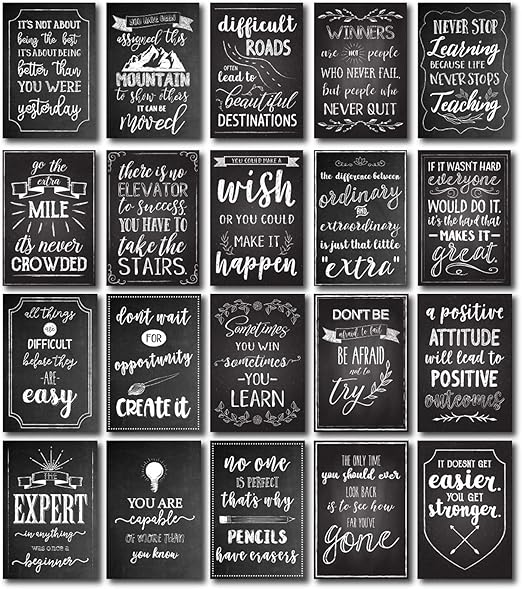 IT'S NOT ABOUT
being the best
IT'S ABOUT BEING
better than
YOU WERE
yesterday
YOU HAVE BEEN
assigned this
MOUNTAIN
to show others
IT CAN BE
moved
difficult
ROADS
OFTEN
lead to
beautiful
DESTINATIONS
WINNERS
are not people
WHO NEVER FAIL,
but people who
NEVER QUIT
NEVER STOP
Learning
BECAUSE LIFE
NEVER STOPS
Teaching
go the
extra
MILE
it's never
CROWDED
there is no
ELEVATOR
to success.
YOU HAVE TO
take the
STAIRS.
YOU COULD MAKE A
wish
OR YOU COULD
MAKE IT
happen
the difference between
ordinary
AND
extraordinary
is just that little
"extra"
IF IT WASN'T HARD
everyone
WOULD DO IT.
it's the hard that
MAKES IT
great.
all things
are
DIFFICULT
before they
-ARE-
easy
don't wait
FOR
opportunity
CREATE IT
Sometimes
YOU WIN
sometimes
-YOU-
LEARN
DON'T BE
afraid to fail
BE AFRAID
not to
try
a positive
ATTITUDE
will lead to
POSITIVE
outcomes
the
EXPERT
in anything
was once a
beginner
YOU ARE
capable
OF MORE THAN
you know
no one
IS PERFECT
that's why
PENCILS
have erasers
THE ONLY TIME
you should ever
LOOK BACK
is to see how
FAR YOU'VE
gone
IT DOESN'T GET
easier.
YOU GET
stronger.